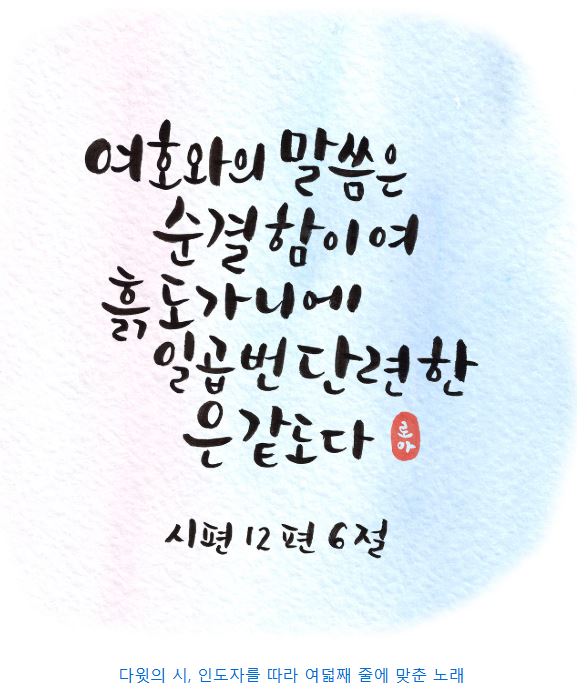 여호와의 말씀은
순결함이여
흙도가니에
일곱번단련한
은같도다
로아
시편 12편 6절
다윗의 시, 인도자를 따라 여덟째 줄에 맞춘 노래